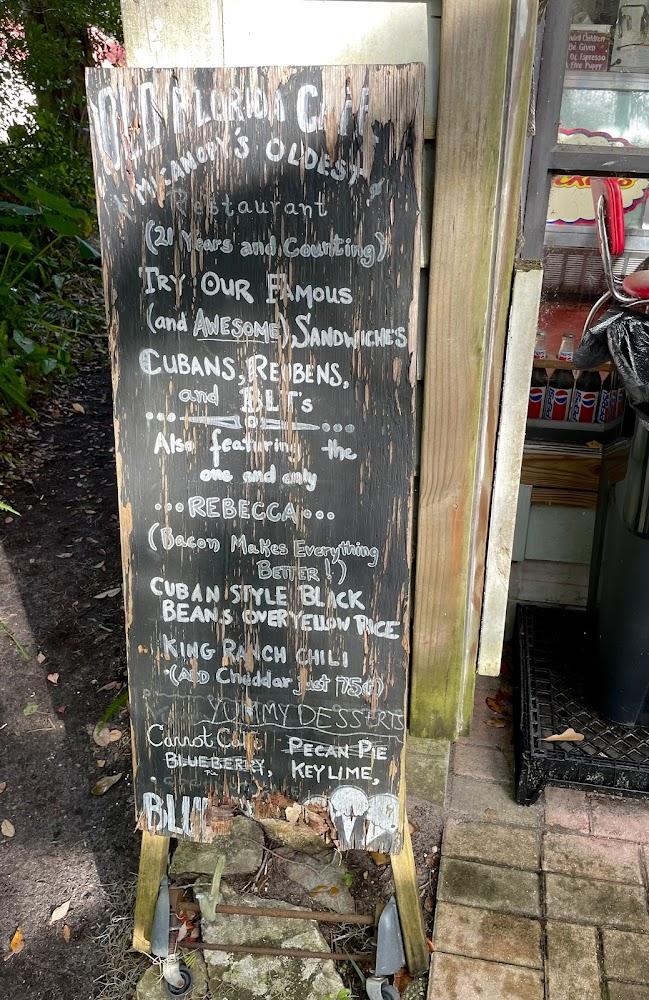 OLD FLORIDA CAFE
MICANOPY'S OLDEST
Restaurant
(21 Years and Counting)
TRY OUR FAMOUS
(and AWESOME) SANDWICHE'S
CUBANS, REUBENS,
and BLT's
Also featuring the
one and only
...REBECCA...
(Bacon Makes Everything
BETTER!)
CUBAN STYLE BLACK
BEANS OVER YELLOW RICE
KING RANCH CHILI
(ADD Cheddar just 75¢)
YUMMY DESSERTS
Carrot Cake PECAN PIE
BLUEBERRY, KEYLIME,
Pie
BLU
Children
Be Given
Espresso
Free Puppy
PEPSI
PEPSI
PEPSI